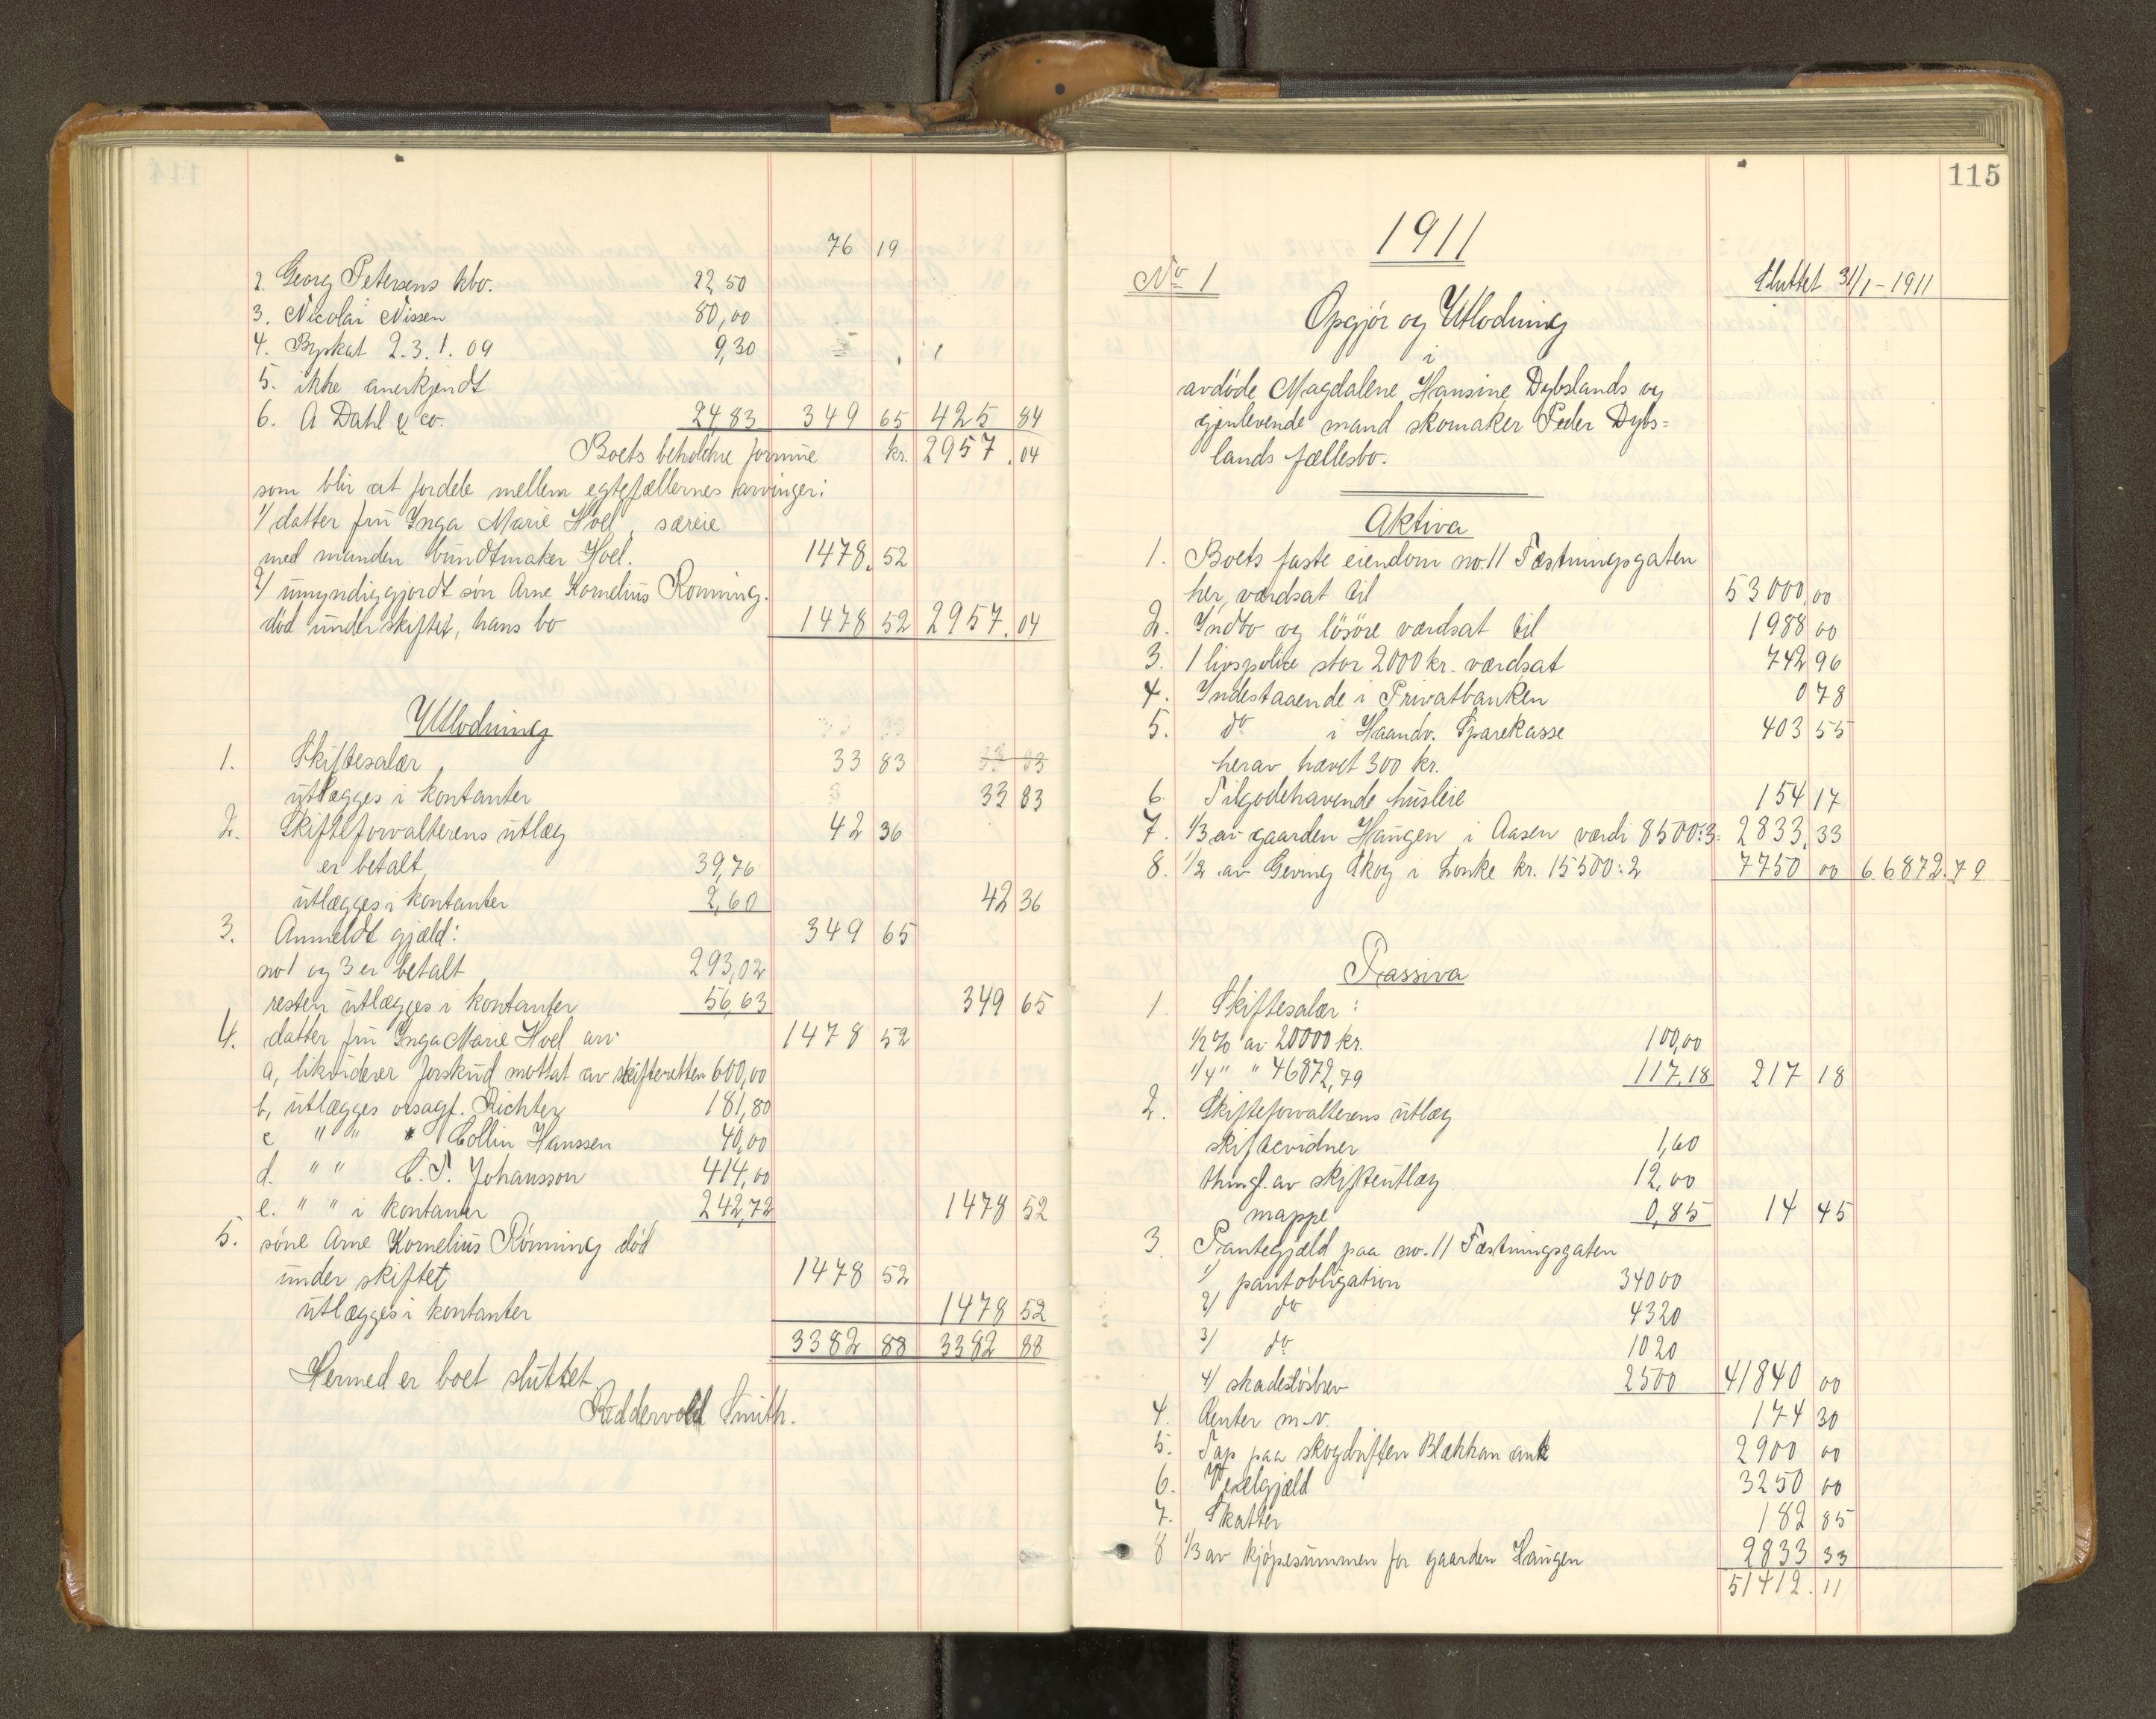 114
76 19
2. Georg Petersens kbo. 22,50
3. Nicolai Nissen 80,00
4. Byskat 2. 3. 1. 09 9,30
5. ikke anerkjendt
6. A Dahl & co. 24,83 349 65 425 84
Boets beholdne formue kr. 2957.04
som blir at fordele mellem egtefællernes arvinger:
1/ datter fru Inga Marie Hoel, særeie
med manden bundtmaker Hoel. 1478.52
2/ umyndiggjordt søn Arne Kornelius Rønning.
død under skiftet, hans bo 1478 52 2957.04
Utlodning
1. Skiftesalær 33 83 33 83
utlægges i kontanter 33 83
2. Skifteforvalterens utlæg 42 36
er betalt 39,76
utlægges i kontanter 2,60 42 36
3. Anmeldt gjæld: 349 65
no 1 og 3 er betalt 293,02
resten utlægges i kontanter 56,63 349 65
4. datter fru Inga Marie Hoel arv 1478 52
a, likviderer forskud mottat av skifteretten 600,00
b, utlægges orsagf. Richter 181,80
c " " " Collin Hanssen 40,00
d. " " C. T. Johansson 414,00
e. " " i kontanter 242,72 1478 52
5. søne Arne Kornelius Rønning død
under skiftet 1478 52
utlægges i kontanter 1478 52
3382 88 3382 88
Hermed er boet sluttet
Reddervold Smith.
115
1911
No 1 Sluttet 31/1 - 1911
Opgjør og Utlodning
i
avdøde Magdalene Hansine Dybslands og
gjenlevende mand skomaker Peder Dybs=
lands fællesbo.
Aktiva
1. Boets faste eiendom no. 11 Fæstningsgaten
her, værdsat til 53000,00
2. Indbo og løsøre værdsat til 1988 00
3. 1 livspolice stor 2000 kr. værdsat 742 96
4. Indestaaende i Privatbanken 0 78
5. do i Haandv. Sparekasse 403 55
herav hævet 300 kr.
6. Tilgodehavende husleie 154 17
7. 1/3 av gaarden Haugen i Aasen værdi 8500:3= 2833.33
8. 1/2 av Geving skog i Lånke kr. 15500:2 7750 00 66872.79
Passiva
1 Skiftesalær:
1/2 % av 20000 kr. 100,00
1/4 " " 46872,79 117,18 217 18
2. Skifteforvalterens utlæg
skiftevidner 1,60
thingl. av skifteutlæg 12,00
mappe 0,85 14 45
3. Pantegjæld paa no. 11 Fæstningsgaten
1/ pantobligation 34000
2/ do 4320
3/ do 1020
4/ skadesløsbrev 2500 41840 00
4. Renter m.v. 174 30
5. Tap paa skogdriften Blakkan 2900 00
6. Vexelgjæld 3250 00
7. Skatter 182 85
8 1/3 av kjøpesummen for gaarden Haugen 2833 33
51412.11